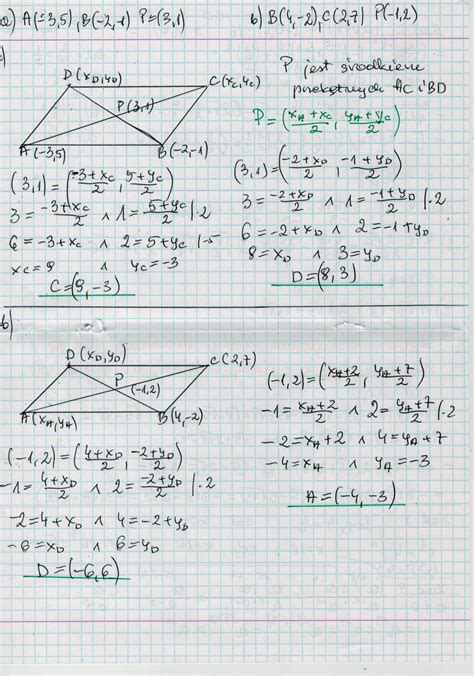 a) A(-3,5), B(-2,-1) P=(3,1)
b) B(4,-2), C(2,7) P(-1,2)
a)
D(x_D,y_D)
C(x_C,y_C)
P(3,1)
A(-3,5)
B(-2,-1)
P jest środkiem
przekątnych AC i BD
P=(x_A+x_C/2, y_A+y_C/2)
(3,1)=(-3+x_C/2, 5+y_C/2)
3=-3+x_C/2 ∧ 1=5+y_C/2 |·2
6=-3+x_C ∧ 2=5+y_C |-5
x_C=9 ∧ y_C=-3
C=(9,-3)
(3,1)=(-2+x_D/2, -1+y_D/2)
3=-2+x_D/2 ∧ 1=-1+y_D/2 |·2
6=-2+x_D ∧ 2=-1+y_D
8=x_D ∧ 3=y_D
D=(8,3)
b)
D(x_D,y_D)
C(2,7)
P
(-1,2)
A(x_A,y_A)
B(4,-2)
(-1,2)=(4+x_D/2, -2+y_D/2)
-1=4+x_D/2 ∧ 2=-2+y_D/2 |·2
-2=4+x_D ∧ 4=-2+y_D
-6=x_D ∧ 6=y_D
D=(-6,6)
(-1,2)=(x_A+2/2, y_A+7/2)
-1=x_A+2/2 ∧ 2=y_A+7/2 |·2
-2=x_A+2 ∧ 4=y_A+7
-4=x_A ∧ y_A=-3
A=(-4,-3)